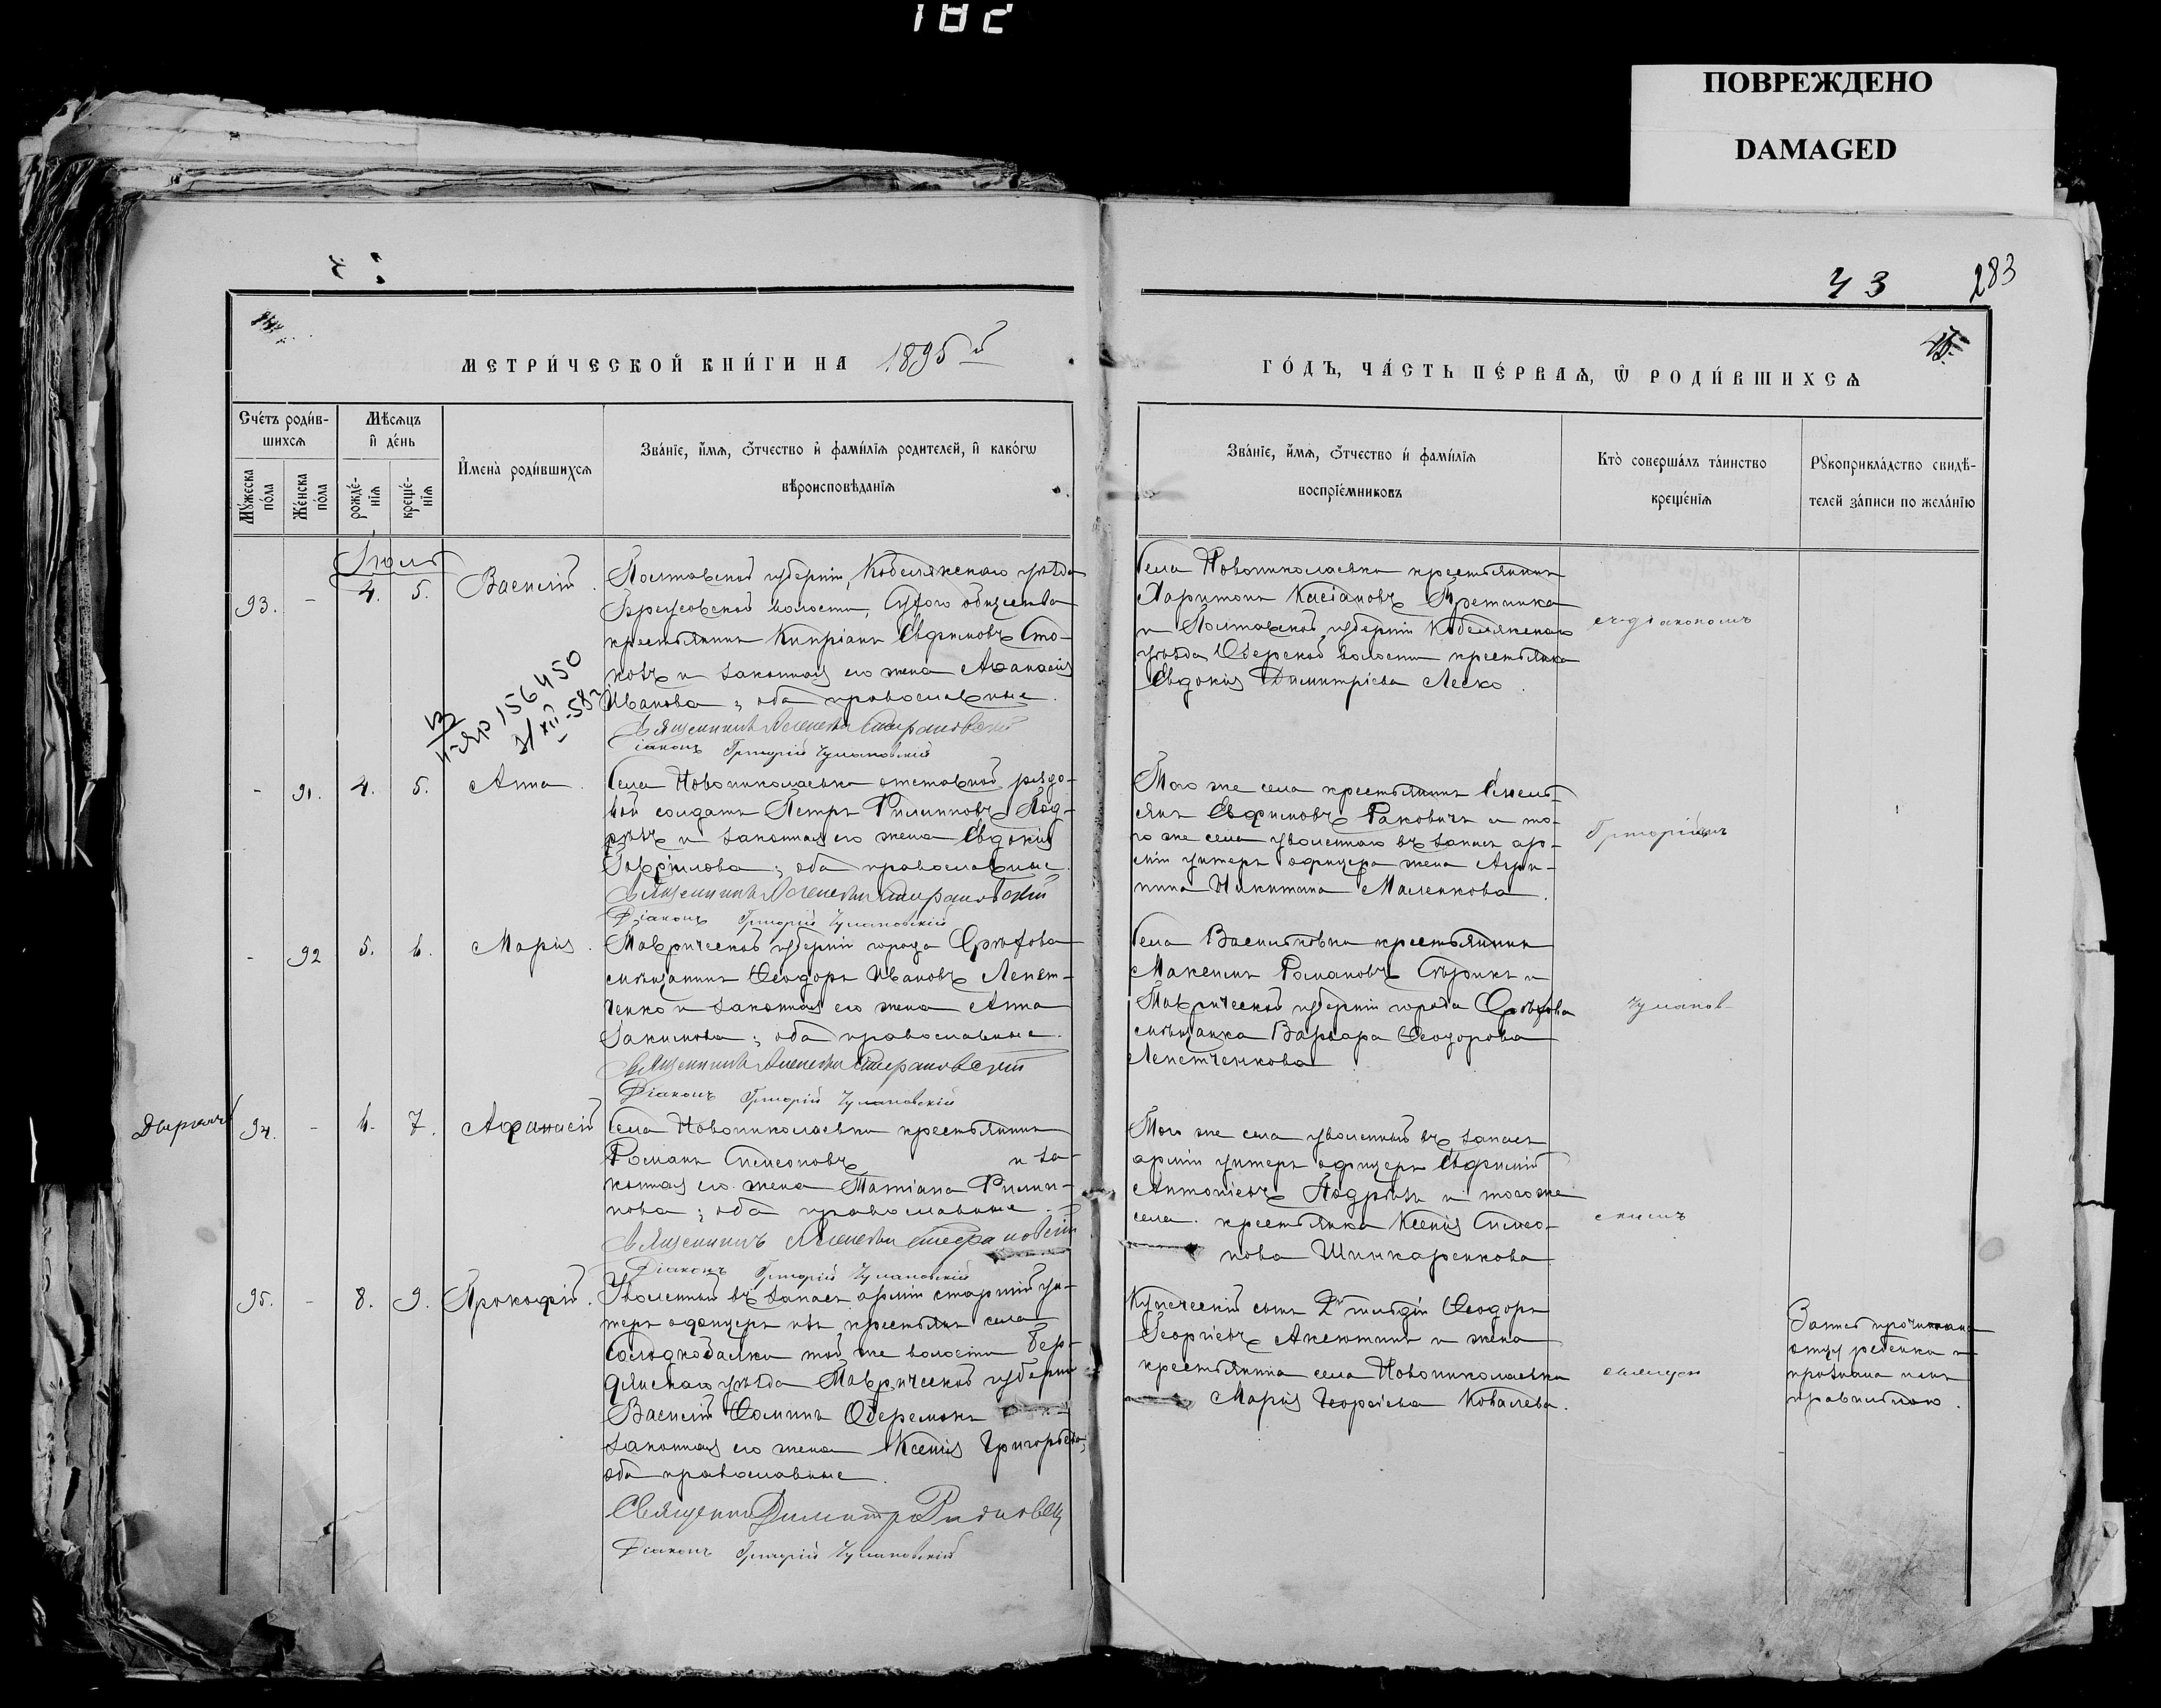 182
ПОВРЕЖДЕНО
DAMAGED
43
283
МЕТРИ́ЧЕСКОЙ КНИ́ГИ НА 1895й
ГО́ДЪ, ЧА́СТЬ ПЕ́РВАѦ, Ѿ РОДИ́ВШИХСѦ
Сче́тъ роди́в-
шихсѧ
Мѣ́сѧцъ
и҆ де́нь
Му́жеска
по́ла
Же́нска
по́ла
рожде́-
нїѧ
креще́-
нїѧ
И҆мена̀ роди́вшихсѧ
Зва́нїе, и҆́мѧ, о҆́тчество и҆ фами́лїѧ родителей, и҆ како́гѡ
вѣроисповѣ́данїѧ
Зва́нїе, и҆́мѧ, о҆́тчество и҆ фами́лїѧ
воспрїе́мниковъ
Кто̀ соверша́лъ та́инство
креще́нїѧ
Рꙋкоприкла́дство свидѣ́-
телей за́писи по жела́нїю
Іюль
93. - 4. 5. Василій.
Полтавской губерніи, Кобелякскаго уѣзда
Бреусовской волости, Сухого общества
крестьянинъ Кипріанъ Евфимовъ Сто-
и законная его жена Аѳанасія
Иванова; оба православные.
Діаконъ Григорій Чумановскій
31/XII-58г
156450
Села Новониколаевки крестьянинъ
Харитонъ Касіановъ
и Полтавской губерніи Кобелякскаго
уѣзда волости крестьянка
Евдокія Димитріева Леско.
съ діакономъ
- 91. 4. 5. Анна.
Села Новониколаевки отставной рядо-
вой солдатъ Петръ Филиповъ Под-
рѣзъ и законная его жена Евдокія
Гаврилова; оба православные.
Діаконъ Григорій Чумановскій
Того же села крестьянинъ Емель-
янъ Евфимовъ Раковичъ и то-
го же села уволеннаго въ запасъ ар-
міи унтеръ офицера жена Агри-
пина Никитина Маленкова.
Григоріемъ
- 92 5. 6. Марія.
Таврической губерніи города Орѣхова
мѣщанинъ Ѳеодоръ Ивановъ Лепет-
ченко и законная его жена Анна
Іакимова; оба православные.
Діаконъ Григорій Чумановскій
Села Васильковки крестьянинъ
Максимъ Романовъ и
Таврической губерніи города Орѣхова
мѣщанка Варвара Ѳеодорова
Лепетченкова
Чуманов-
94. - 6. 7. Аѳанасій
Села Новониколаевки крестьянинъ
Романъ Симеоновъ и за-
конная его жена Татіана Филип-
пова; оба православные.
Діаконъ Григорій Чумановскій
Того же села уволенный въ запасъ
арміи унтеръ офицеръ Евфимій
Антоніевъ Подрѣзъ и того же
села крестьянка Ксенія Симео-
нова Шинкаренкова
скимъ
95. - 8. 9. Прокофій.
Уволенный въ запасъ арміи старшій ун-
теръ офицеръ изъ крестьянъ села
Солодкобалки той же волости Бер-
дянскаго уѣзда Таврической губерніи
Василій Ѳоминъ
законная его жена Ксенія Григорьева;
оба православные.
Священникъ Димитрій
Діаконъ Григорій Чумановскій
Купеческій сынъ 2й гильдіи Ѳеодоръ
Георгіевъ Аксютинъ и жена
крестьянина села Новониколаевки
Марія Георгіева Ковалева.
священ
Запись прочитана
отцу ребенка и
признана имъ
правильною.